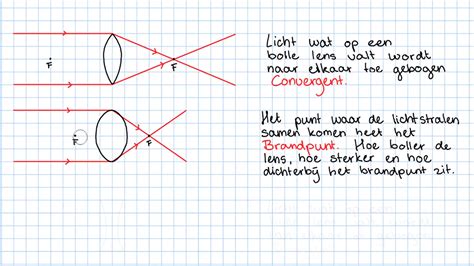 F
F
Licht wat op een
bolle lens valt wordt
naar elkaar toe gebogen
Convergent.
F
F
Het punt waar de lichtstralen
samen komen heet het
Brandpunt. Hoe boller de
lens, hoe sterker en hoe
dichterbij het brandpunt zit.